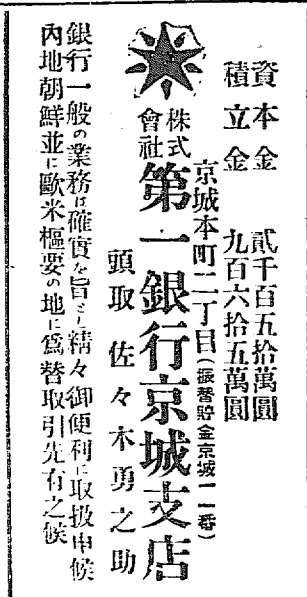 資本金　貳千百五拾萬圓
積立金　九百六拾五萬圓
京城本町二丁目（振替貯金京城一一番）
株式會社第一銀行京城支店
頭取　佐々木勇之助
銀行一般の業務は確實を旨とし精々御便利に取扱申候
內地朝鮮並に歐米樞要の地に爲替取引先有之候